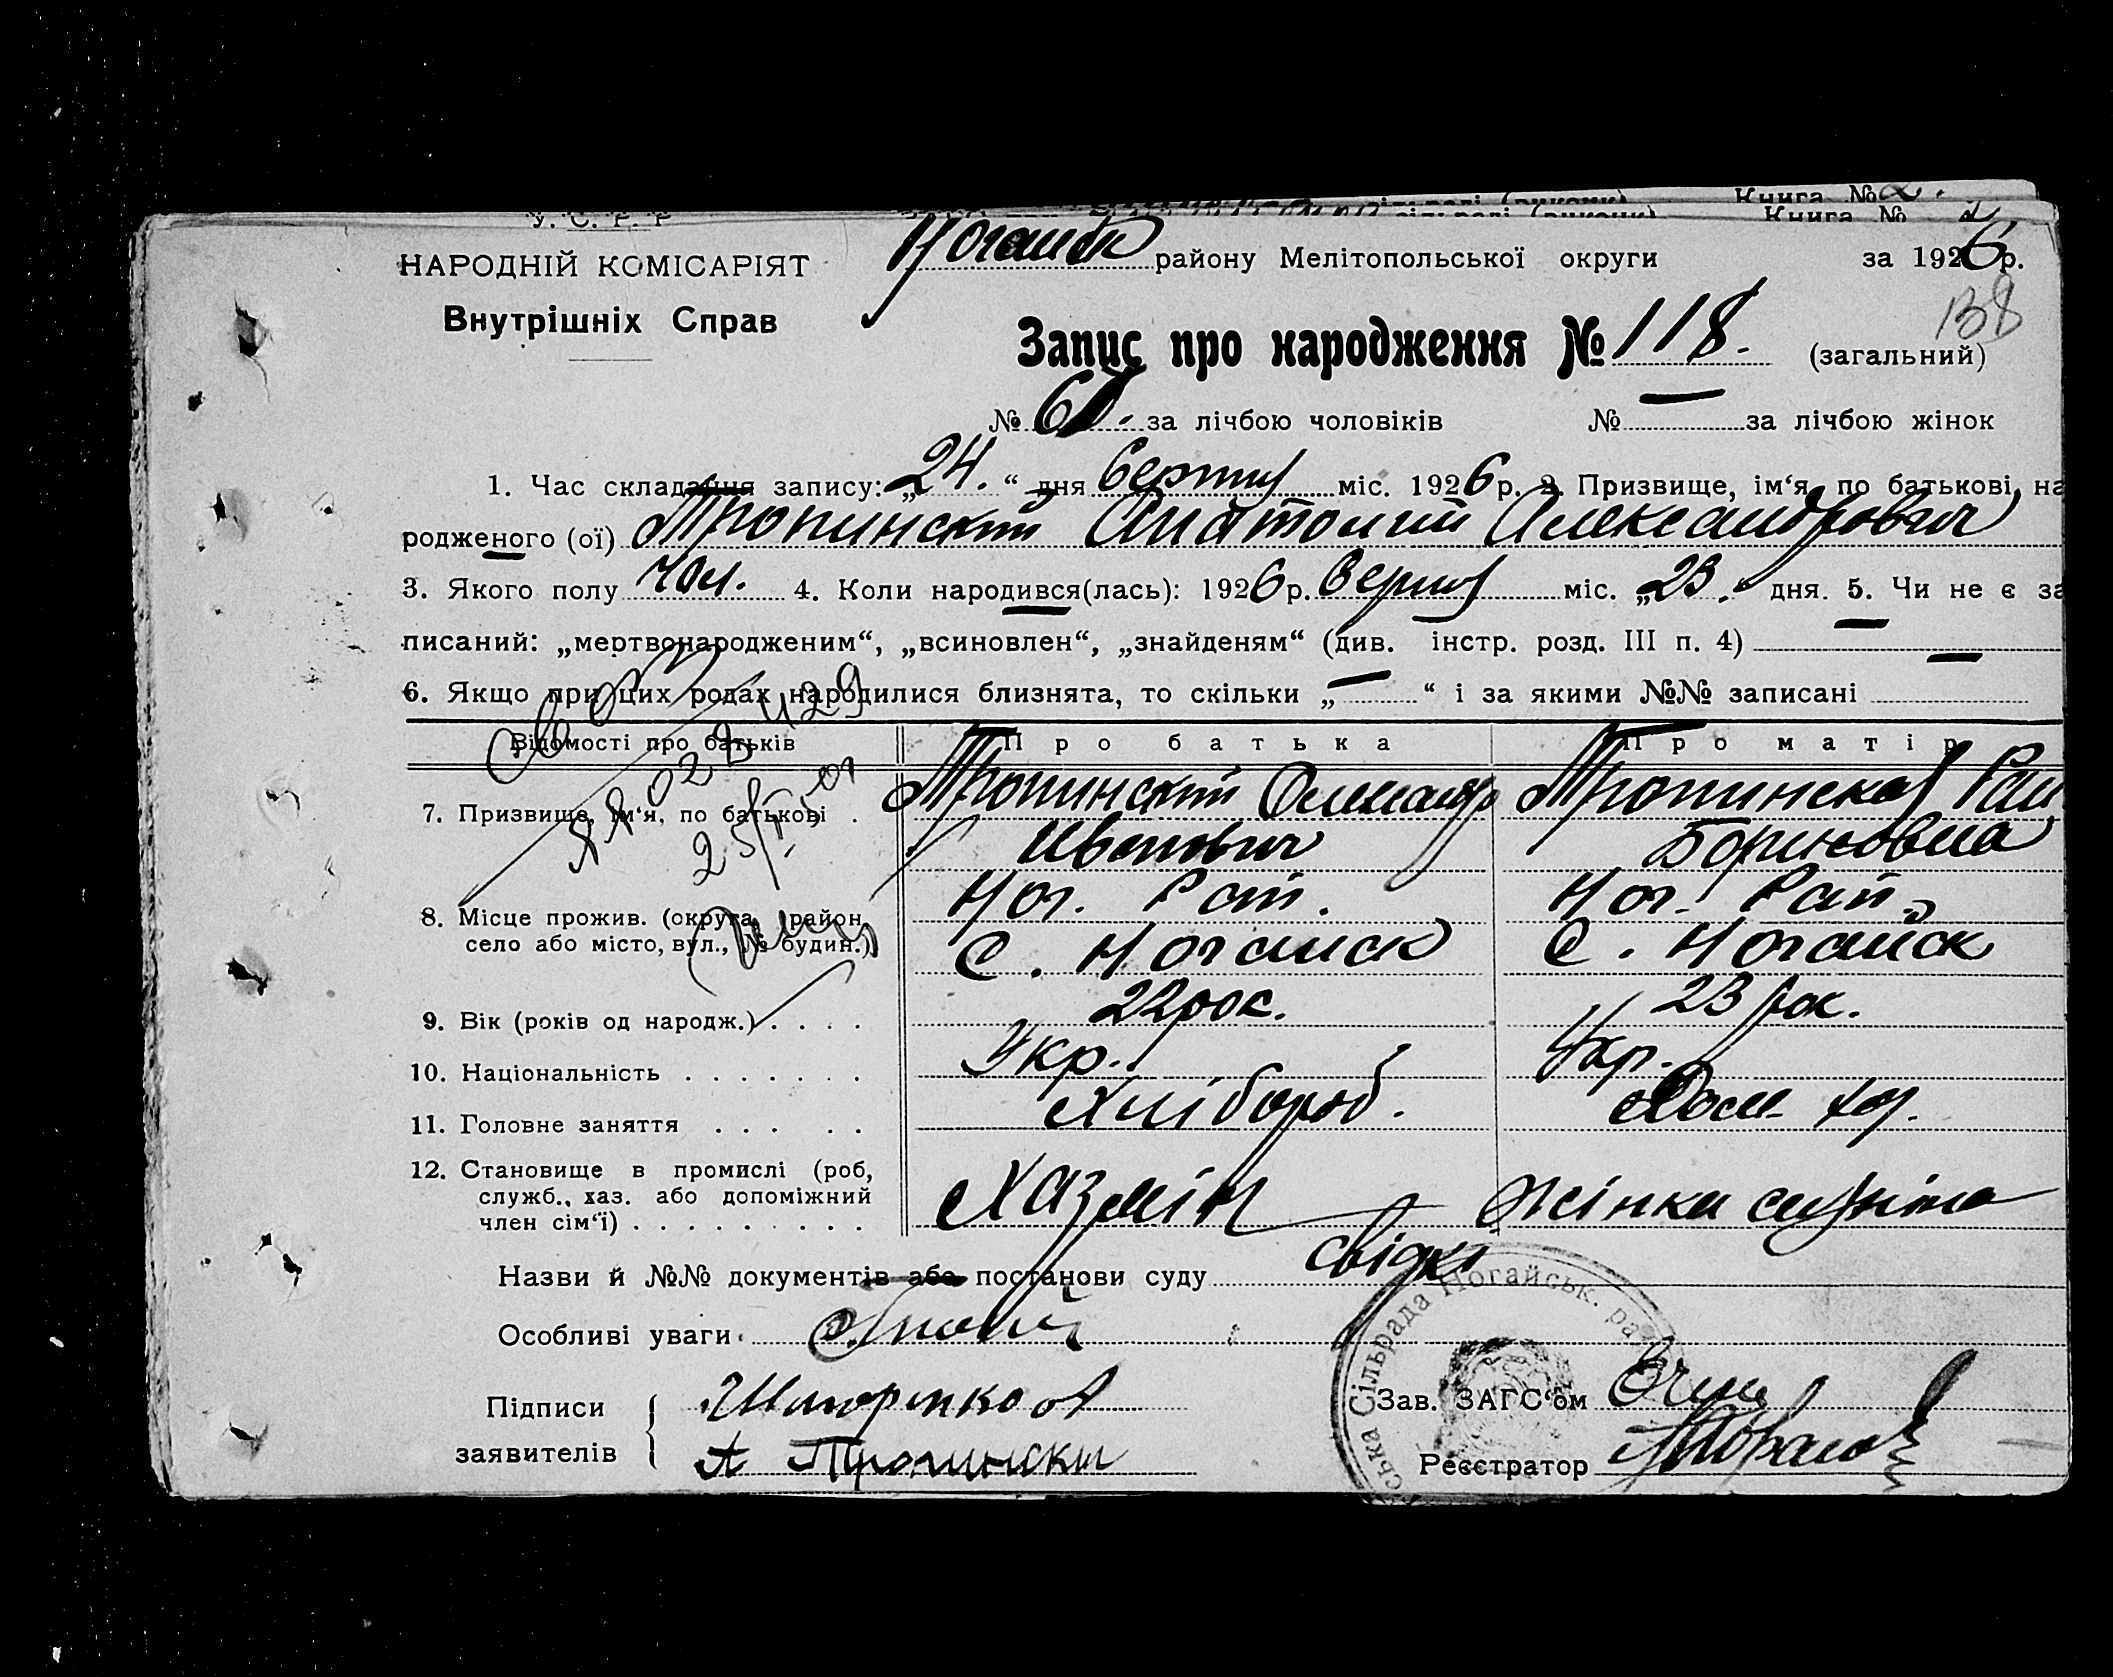 Книга №
Книга №
У. С. Р. Р
НАРОДНІЙ КОМІСАРІЯТ
Внутрішніх Справ
Ногайськ району Мелітопольської округи за 1926 р.
138
Запис про народження № 118. (загальний)
№ за лічбою чоловіків № — за лічбою жінок
1. Час складання запису: „24.“ дня серпня міс. 1926 р. 2. Призвище, ім‘я, по батькові, на
родженого (ої) Тропинский Анатолий Александрович
3. Якого полу чол. 4. Коли народився(лась): 1926 р. серпня міс. „23. дня. 5. Чи не є за
писаний: „мертвонародженим“, „всиновлен“, „знайденям“ (див. інстр. розд. III п. 4) —
6. Якщо при цих родах народилися близнята, то скільки „—“ і за якими №№ записані —
Відомості про батьків Про батька Про матір
7. Призвище, ім‘я, по батькові . Тропинский Тропинская
Иванович Борисовна
8. Місце прожив. (округа, район, село або місто, вул., № будин.) Ног. Рай. Ног. Рай.
с. Ногайск с. Ногайск
9. Вік (років од народж.) . . . . 22 рок. 23 рок.
10. Національність . . . . . . . Укр. Укр.
11. Головне заняття . . . . . Хлібороб. Дом. хоз.
12. Становище в промислі (роб,
служб., хаз. або допоміжний
член сім‘ї) . . . . . . . . . Хазяїн Жінка
Назви й №№ документів або постанови суду свідкі
Особливі уваги
Підписи
заявителів { А Тропински
Зав. ЗАГС‘ом
Реєстратор
ська Сільрада Ногайськ. ра